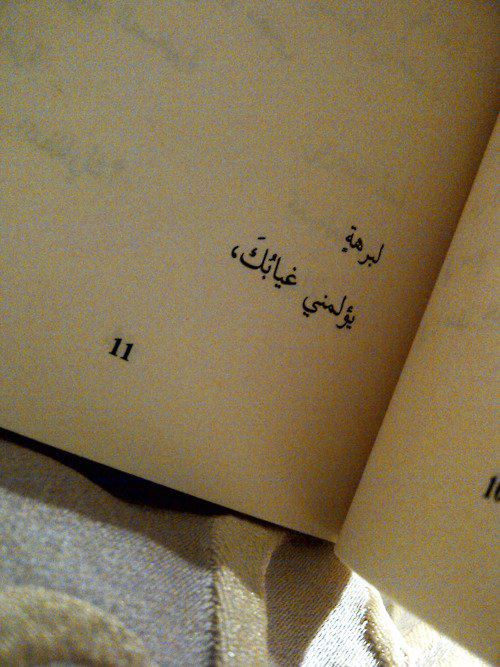 لبرهةٍ
يؤلمني غيابُكَ،
11